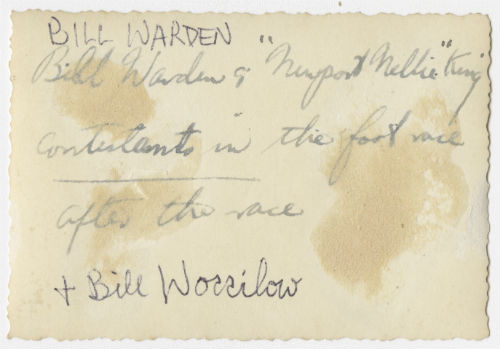 BILL WARDEN
Bill Warden & "Newport Nellie" King
contestants in the foot race
after the race
+ Bill Woccilow